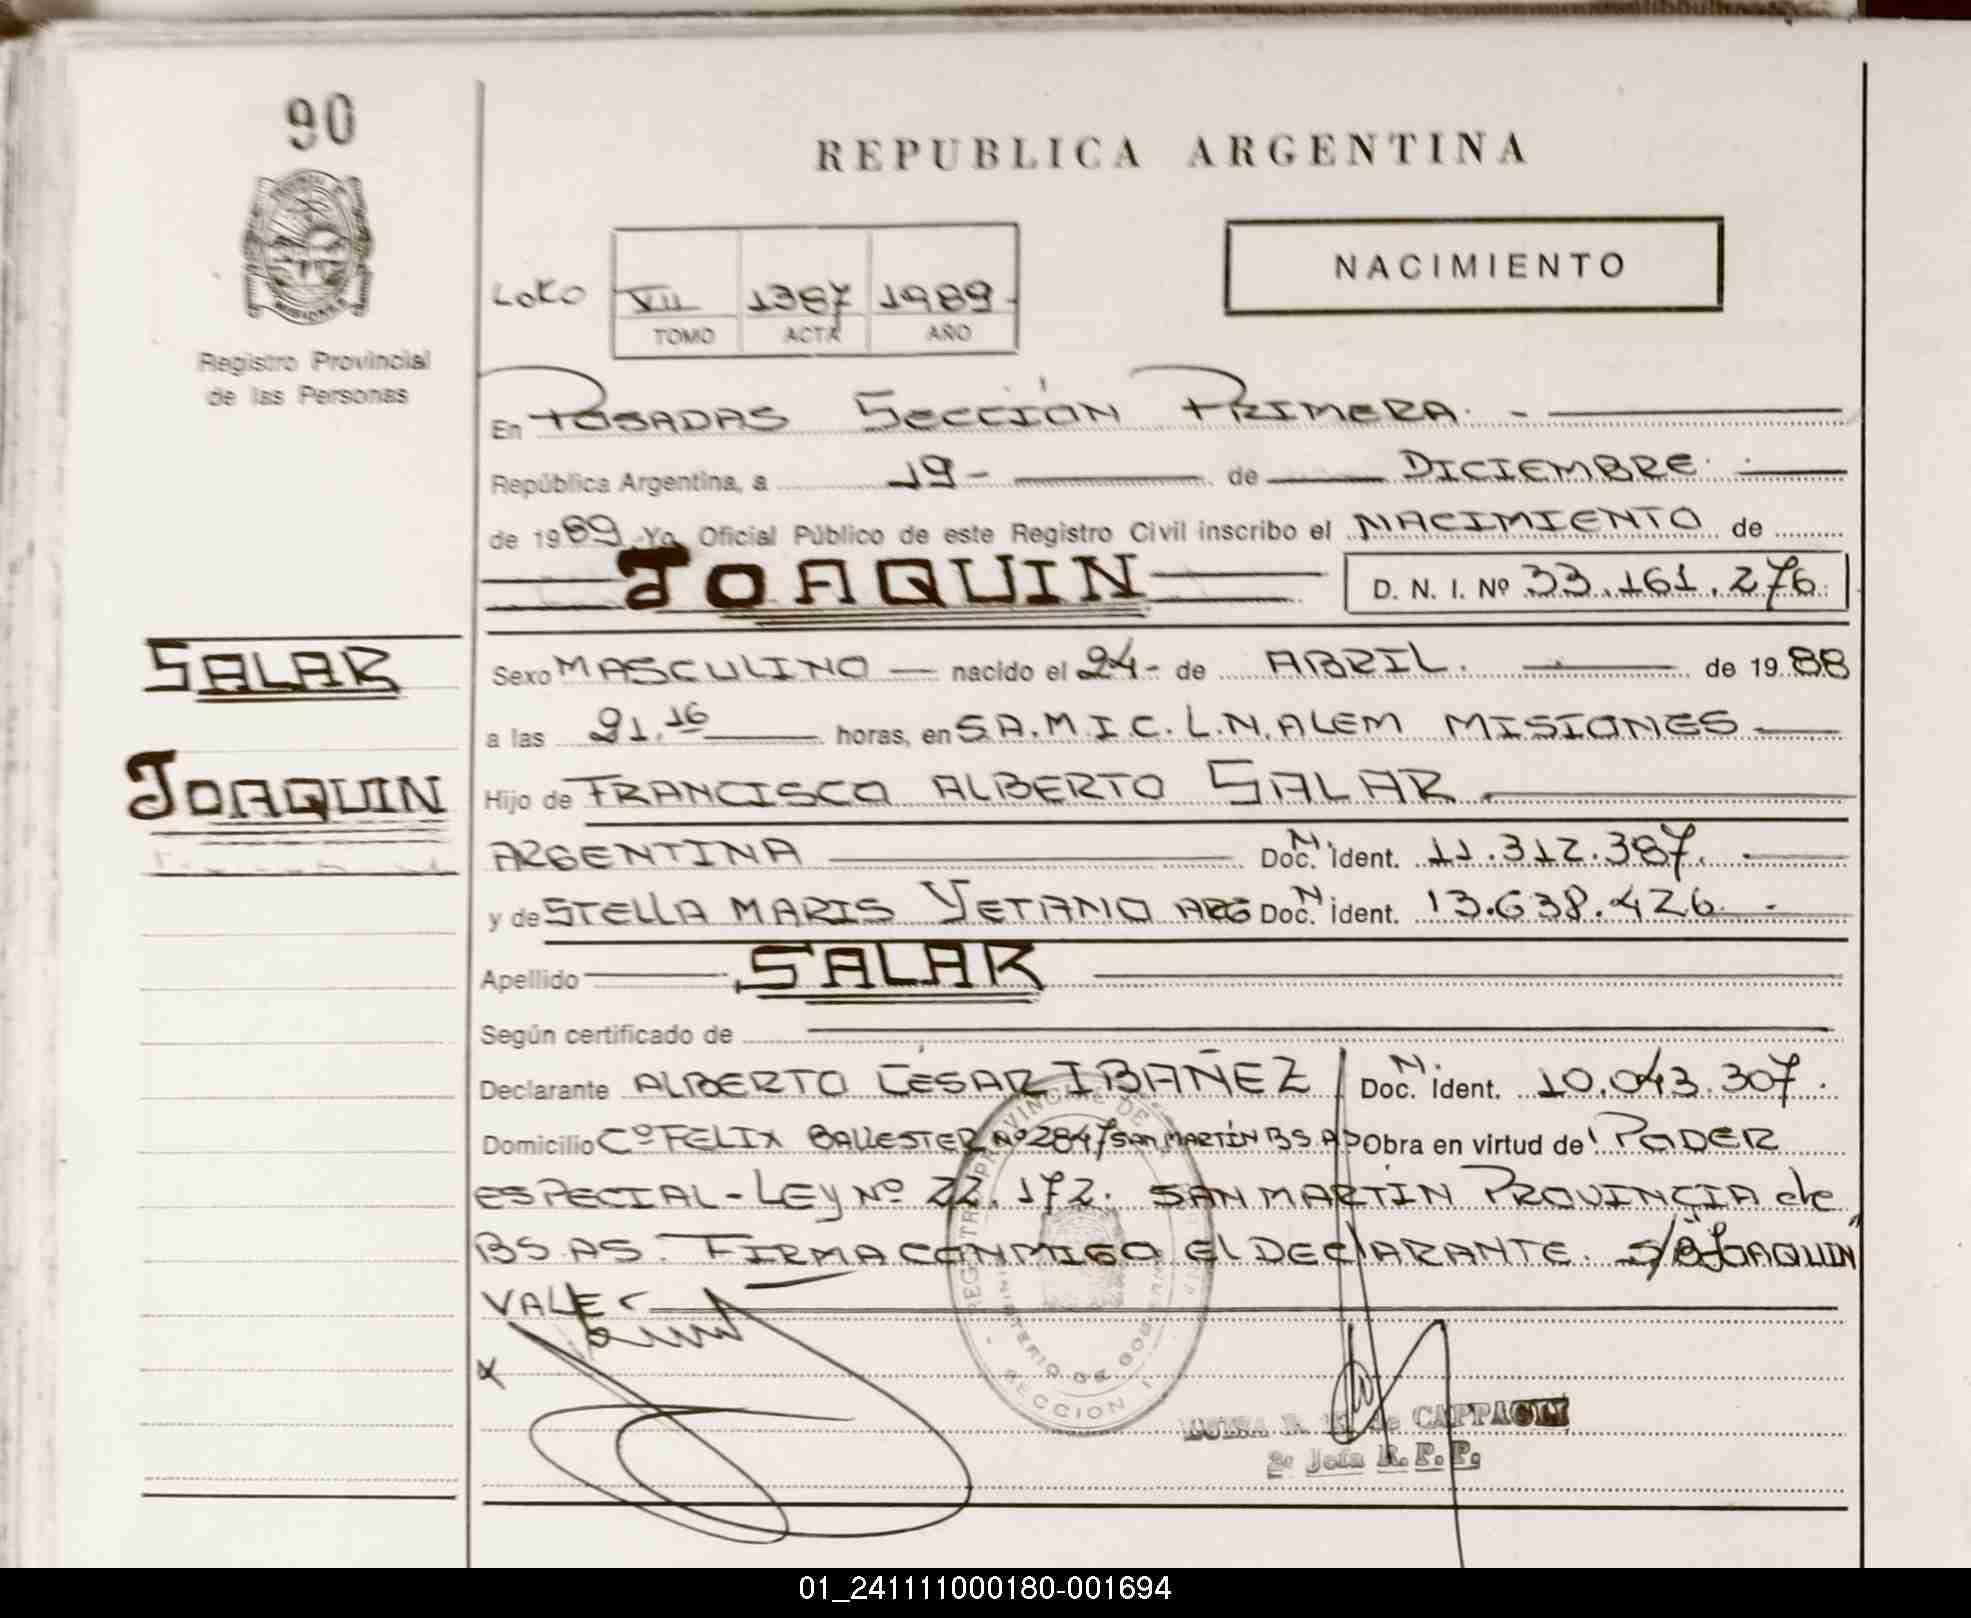 90
REPUBLICA ARGENTINA
NACIMIENTO
LOKO VII 1387 1989
TOMO ACTA AÑO
Registro Provincial
de las Personas
En POSADAS SECCIÓN PRIMERA. -
República Argentina, a 19 - de DICIEMBRE.
de 1989. Yo Oficial Público de este Registro Civil inscribo el NACIMIENTO de
JOAQUIN D. N. I. Nº 33.161.276.
SALAR
Sexo MASCULINO — nacido el 24 - de ABRIL. de 1988
a las 21.16 horas, en S.A.M.I.C. L.N. ALEM MISIONES
JOAQUIN
Hijo de FRANCISCO ALBERTO SALAR
ARGENTINA Doc. N. Ident. 11.312.387.
y de STELLA MARIS YETANO ARG Doc. N. Ident. 13.638.426. -
Apellido SALAR
Según certificado de
Declarante ALBERTO CÉSAR IBAÑEZ Doc. N. Ident. 10.043.307.
Domicilio Cº FELIX BALLESTER Nº 2847 SAN MARTÍN BS. AS Obra en virtud de PODER
ESPECIAL - LEY Nº 22.172. SAN MARTÍN PROVINCIA de
BS. AS. FIRMA CONMIGO EL DECLARANTE. S/B "JOAQUIN"
VALE
REGISTRO PROVINCIAL DE
MINISTERIO DE GOB
SECCION 1
de CAPPAGLI
2º Jefa R. P. P.
01_241111000180-001694